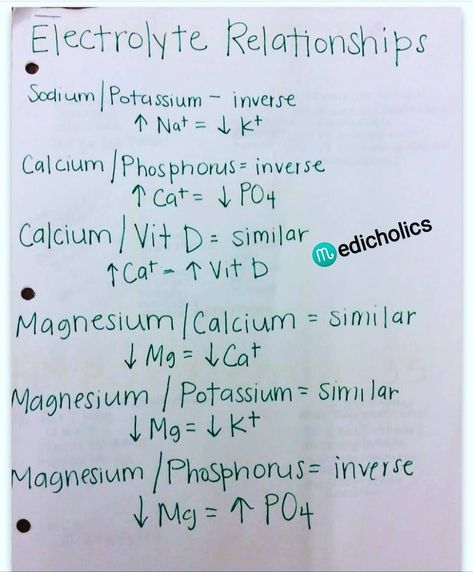 Electrolyte Relationships
Sodium/Potassium - inverse
↑ Na+ = ↓ K+
Calcium/Phosphorus = inverse
↑ Ca+ = ↓ PO4
Calcium/Vit D = similar
medicholics
↑ Ca+ - ↑ Vit D
Magnesium/Calcium = similar
↓ Mg = ↓ Ca+
Magnesium/Potassium = similar
↓ Mg = ↓ K+
Magnesium/Phosphorus = inverse
↓ Mg = ↑ PO4